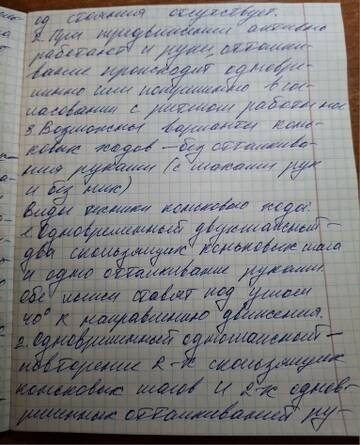 од стояния отсутствует.
2. При передвижении активно
работают и руки отталки-
вание происходит одновре-
менно или попеременно в со-
гласовании с ритмом работы ног
3. Возможны варианты конь-
ковых ходов – без отталкива-
ния руками (с махами рук
и без них)
Виды техники конькового хода
1. Одновременный двухшажный –
два скользящих коньковых шага
и одно отталкивание руками.
обе лыжи ставят под углом
40° к направлению движения.
2. Одновременный одношажный –
повторение 2-х скользящих
коньковых шагов и 2-х однов-
ременных отталкиваний ру-